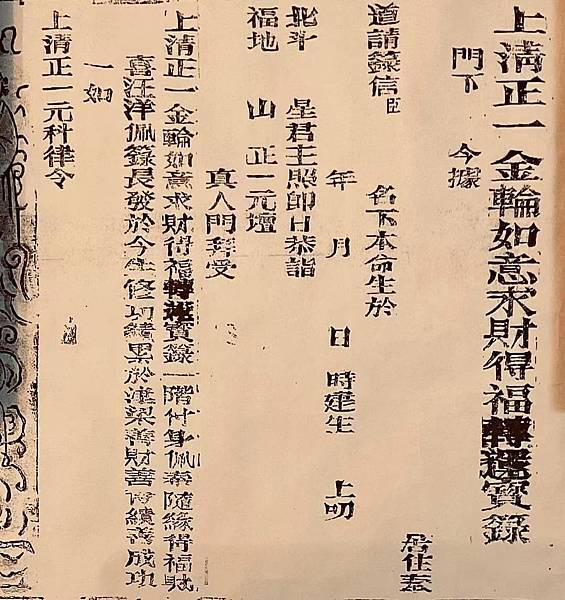 上清正一金輪如意求財得福轉運寶籙
門下　今據
居住奉
道請籙信臣　名下本命生於
年　月　日　時建生　上叩
北斗　星君主照即日恭詣
福地　山　正一元壇
真人門拜受
上清正一金輪如意求財得福轉運寶籙一階付身佩奉隨緣得福財
喜汪洋佩籙長發於今生修功績果於津梁善財善會績善成功
一如
上清正一元科律令